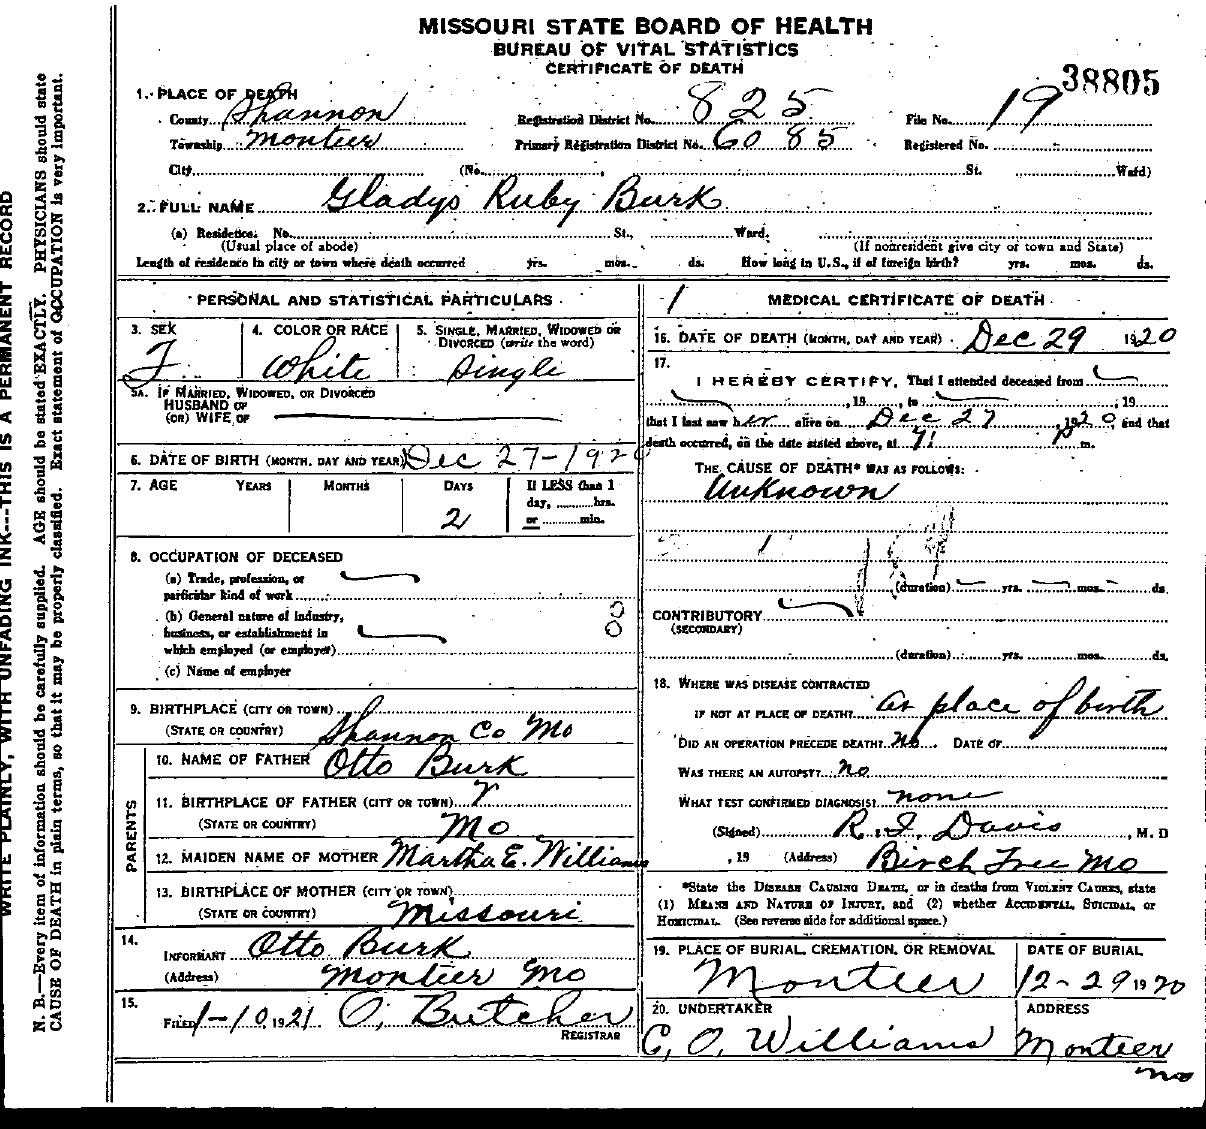 MISSOURI STATE BOARD OF HEALTH
BUREAU OF VITAL STATISTICS
CERTIFICATE OF DEATH
38805
1. PLACE OF DEATH
County Shannon Registration District No. 825 File No. 19
Township Montier Primary Registration District No. 6085 Registered No.
City (No. , St. Ward)
2. FULL NAME Gladys Ruby Burk
(a) Residence. No. St., Ward.
(Usual place of abode) (If nonresident give city or town and State)
Length of residence in city or town where death occurred yrs. mos. ds. How long in U.S., if of foreign birth? yrs. mos. ds.
PERSONAL AND STATISTICAL PARTICULARS
3. SEX 4. COLOR OR RACE 5. SINGLE, MARRIED, WIDOWED OR
DIVORCED (write the word)
F White Single
5A. IF MARRIED, WIDOWED, OR DIVORCED
HUSBAND OF
(OR) WIFE OF
6. DATE OF BIRTH (MONTH, DAY AND YEAR) Dec 27-1920
7. AGE YEARS MONTHS DAYS If LESS than 1
day, hrs.
2 or min.
8. OCCUPATION OF DECEASED
(a) Trade, profession, or
particular kind of work
(b) General nature of industry,
business, or establishment in
which employed (or employer)
(c) Name of employer
9. BIRTHPLACE (CITY OR TOWN)
(STATE OR COUNTRY) Shannon Co Mo
PARENTS
10. NAME OF FATHER Otto Burk
11. BIRTHPLACE OF FATHER (CITY OR TOWN)
(STATE OR COUNTRY) Mo
12. MAIDEN NAME OF MOTHER Martha E. Williams
13. BIRTHPLACE OF MOTHER (CITY OR TOWN)
(STATE OR COUNTRY) Missouri
14.
INFORMANT Otto Burk
(Address) Montier Mo
15.
FILED 1-10 1921 O. Butcher
REGISTRAR
MEDICAL CERTIFICATE OF DEATH
16. DATE OF DEATH (MONTH, DAY AND YEAR) Dec 29 1920
17.
I HEREBY CERTIFY, That I attended deceased from
, 19 , to , 19
that I last saw her alive on Dec 27, 1920, and that
death occurred, on the date stated above, at P m.
THE CAUSE OF DEATH* WAS AS FOLLOWS:
Unknown
(duration) yrs. mos. ds.
CONTRIBUTORY
(SECONDARY)
(duration) yrs. mos. ds.
18. WHERE WAS DISEASE CONTRACTED
IF NOT AT PLACE OF DEATH? at place of birth
DID AN OPERATION PRECEDE DEATH? No DATE OF
WAS THERE AN AUTOPSY? No
WHAT TEST CONFIRMED DIAGNOSIS? none
(Signed) R. I. Davis, M. D
, 19 (Address) Birch Tree Mo
*State the DISEASE CAUSING DEATH, or in deaths from VIOLENT CAUSES, state
(1) MEANS AND NATURE OF INJURY, and (2) whether ACCIDENTAL, SUICIDAL, or
HOMICIDAL. (See reverse side for additional space.)
19. PLACE OF BURIAL, CREMATION, OR REMOVAL DATE OF BURIAL
Montier 12-29 1920
20. UNDERTAKER ADDRESS
C. O. Williams Montier
Mo
WRITE PLAINLY, WITH UNFADING INK---THIS IS A PERMANENT RECORD
N. B.—Every item of information should be carefully supplied. AGE should be stated EXACTLY. PHYSICIANS should state
CAUSE OF DEATH in plain terms, so that it may be properly classified. Exact statement of OCCUPATION is very important.